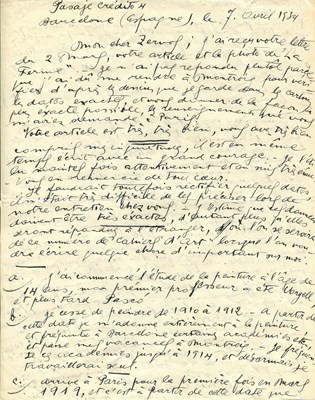 Pasaje crédito 4
Barcelone (Espagne), le 7 avril 1934
Mon cher Zervos; j'ai reçu votre lettre
du 2 Mars, votre article et la photo de "La
Ferme". Je n'ai pas repondu plutôt parce
que j'ai dû me rendre à Montroig pour
d'après les dessins que je garde dans les cartons
les dates exactes, et vous donner de la façon
plus exacte possible les renseignements que vous
m'avez demandé à Paris.
Votre article est très, très bien, vous avez très bien
compris mes, il est en même
temps écrit avec un grand courage. Je l'ai
lu maintes fois attentivement et en suis très ému
Je vous remercie de tout cœur.
Il faudrait toutefois rectifier quelques dates,
il m'était très difficile de les préciser lors de
notre entretien chez vous. J'estime que les dates
doivent être très exactes, d'autant plus qu'elles
seront répandues à l'étranger, où l'on se servira
de ce numéro de "Cahiers d'Art" lorsque l'on voudra
écrire quelque chose d'important sur moi.
a. J'ai commencé l'étude de la peinture à l'âge de
14 ans, mon premier professeur a été Urgell
et plus tard Pasco
b. je cesse de peindre de 1910 à 1912 - à partir de
cette date je m'adonne entièrement à la peinture,
et frequente à Barcelone certaines académies etc,
et passe mes vacances à Montroig. Je frequente
les académies jusqu'à 1914, et désormais je
travaillerai seul.
c. arrivé à Paris pour la première fois en Mars
1919, et c'est à partir de cette date que